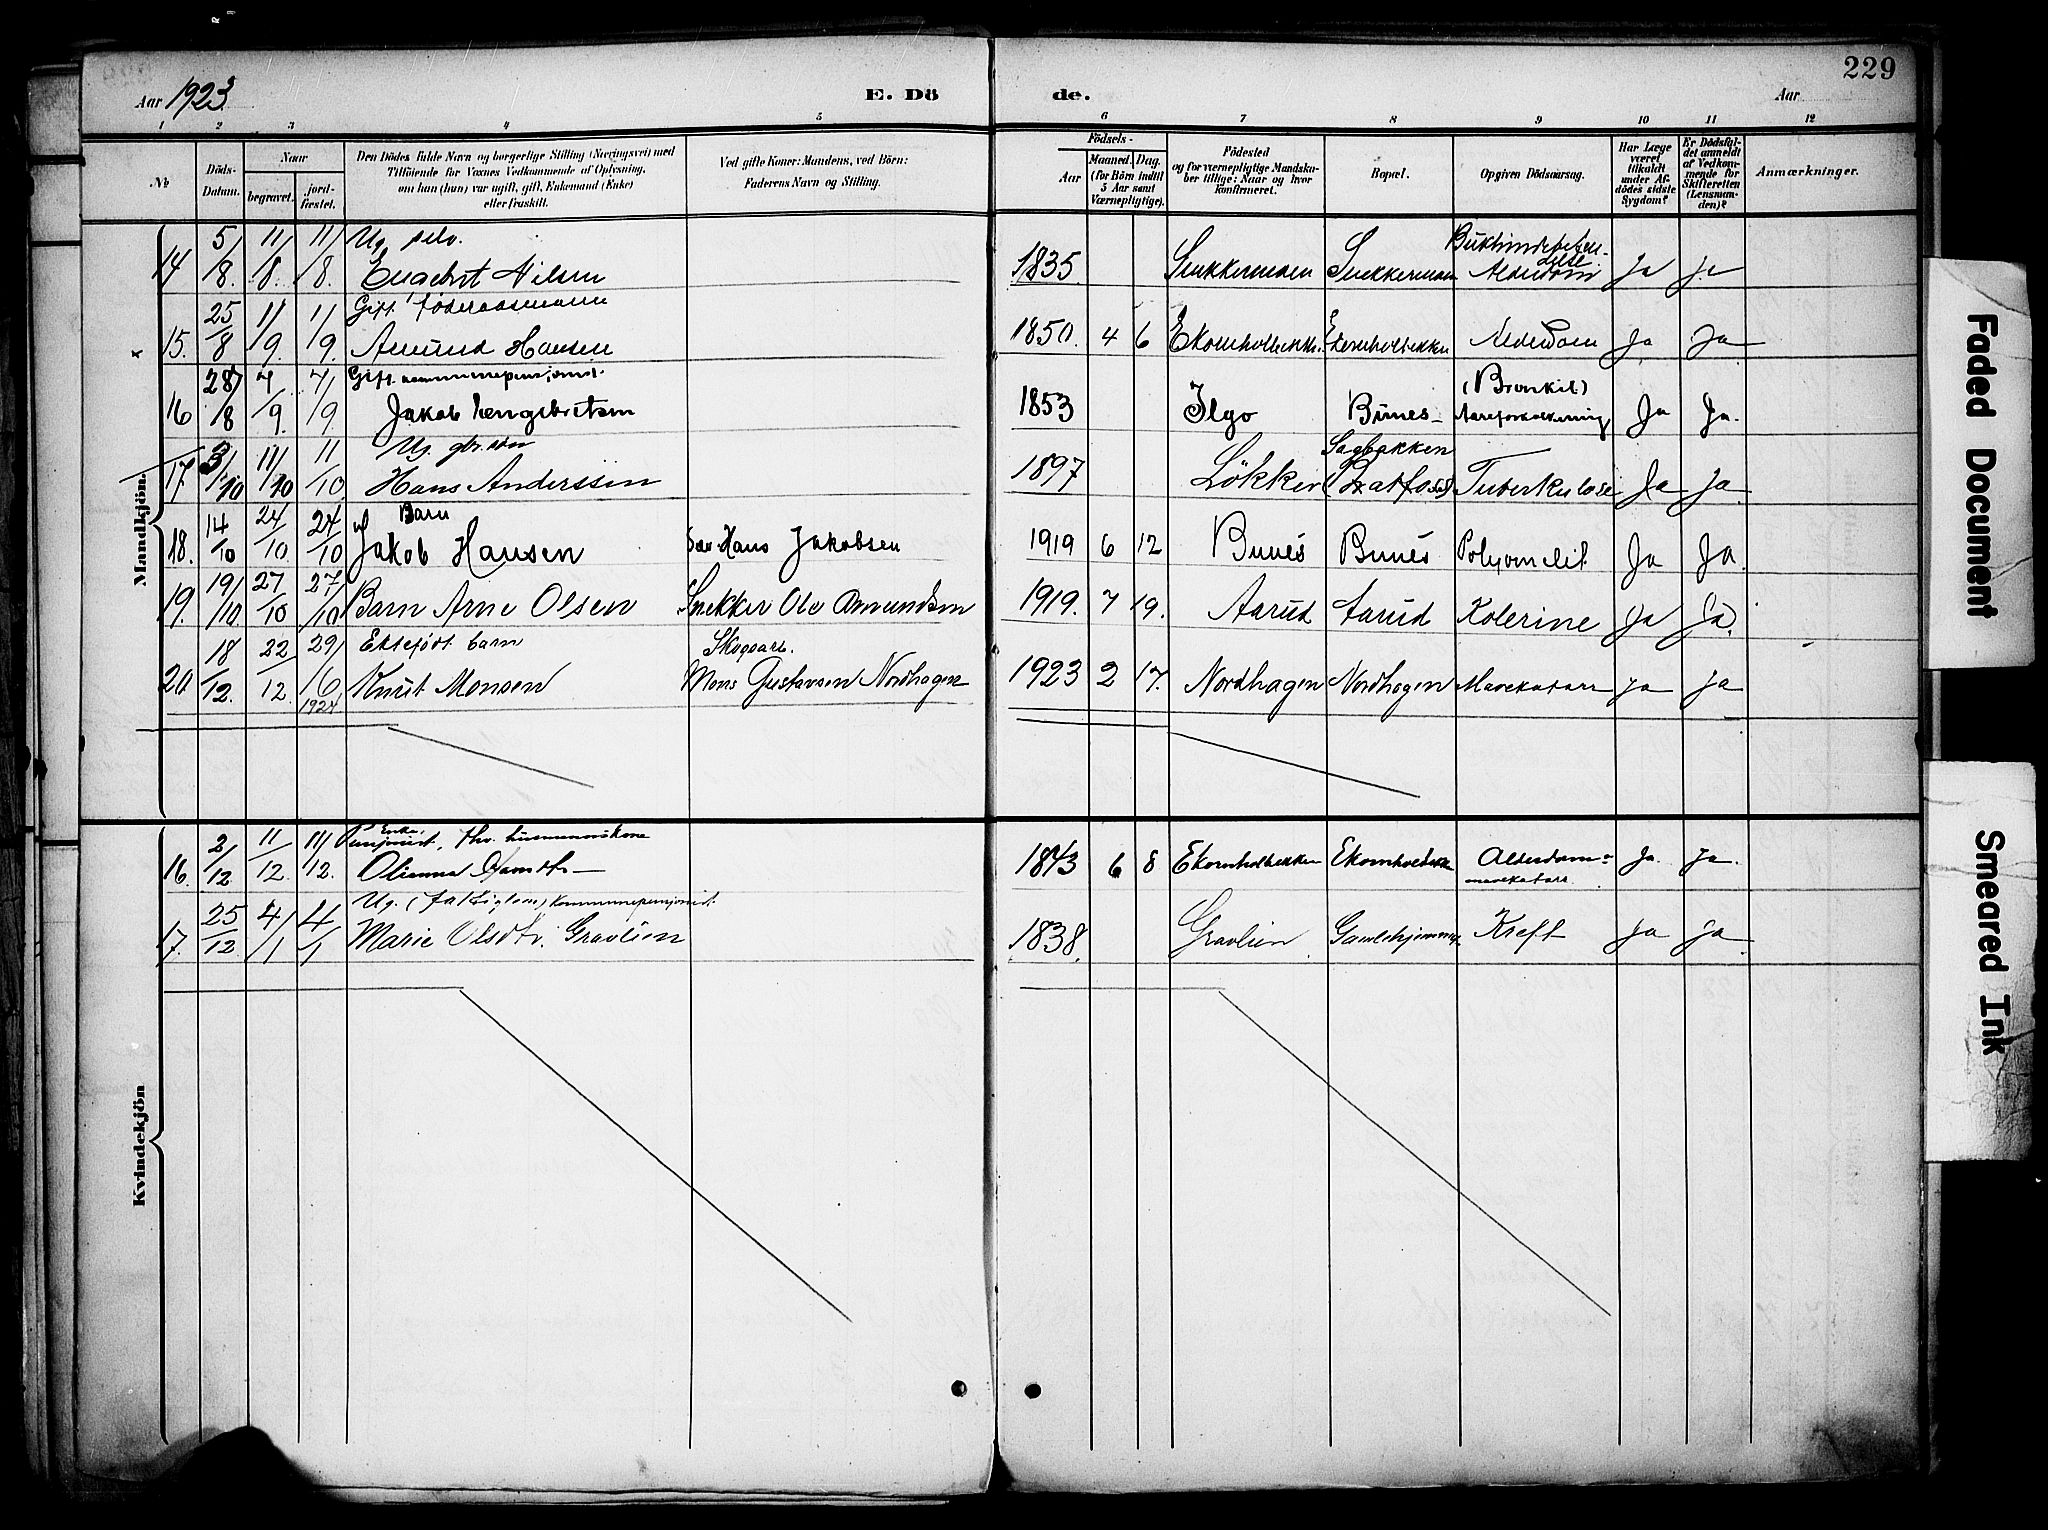 229
Aar 1923
E. Dö de.
Aar
1 2 3 4 5 6 7 8 9 10 11 12
№
Döds-Datum.
Naar
begravet.
jord-fæstet.
Den Dödes fulde Navn og borgerlige Stilling (Næringsvei) med
Tilföiende for Voxnes Vedkommende af Oplysning,
om han (hun) var ugift, gift, Enkemand (Enke)
eller fraskilt.
Ved gifte Koner: Mandens, ved Börn:
Faderens Navn og Stilling.
Födsels-
Aar
Maaned. Dag.
(for Börn indtil
5 Aar samt
Værnepligtige).
Födested
og for værnepligtige Mandska-
ber tillige: Naar og hvor
konfirmeret.
Bopæl.
Opgiven Dödsaarsag.
Har Læge
været
tilkaldt
under Af-
dödes sidste
Sygdom?
Er Dödsfal-
det anmeldt
af Vedkom-
mende for
Skifteretten
(Lensman-
den)?
Anmærkninger.
Mandkjön.
14 5/8. 11/8. 11/8. Ug. selv.
Engebret Nilsen 1835 Snekkermoen Alderdom Ja ja
15. 25/8 11/9. 11/9. Gift föderaadsmann
Amund Hansen 1850. 4 6 Ekornholbekken Ekornholbekken Alderdom Ja Ja
16 28/8 7/9. 7/9 Gift kommunepensjonist.
Jakob Engebretsen 1853 Bunes (Bronkit) Aareforkalkning Ja Ja.
17 3/10 11/10 11/10 Ug.
Hans Anderssen 1897 Lökker Sagbakken Tuberkulose Ja Ja
18. 14/10 24/10 24/10 Barn
Jakob Hansen Hans Jakobsen 1919 6 12 Bunes Bunes Ja Ja
19. 19/10. 27/10 27/10 Barn Arne Olsen Snekker Ole Amundsen 1919. 7 19. Aarud Aarud Kolerine Ja Ja.
20 18/12. 22/12. 29/16 1924 Ektefödt barn
Knut Monsen Skogsarb.
Mons Gustavsen Nordhagen 1923 2 17. Nordhagen Nordhagen Mavekatarr ja ja
Kvindekjön
16. 2/12 11/12. 11/12. Enke, Pensjonist, fhv. husmannskone
1843 6 8 Ekornholbekken Ekornholbekken Alderdom mavekatarr Ja. ja.
17. 25/12 4/1 4/1 Ug. (fattiglem) kommunepensjonist.
Marie Olsdtr. Gravlien 1838. Gravlien Gamlehjemmet Kreft ja ja
Faded Document
Smeared Ink